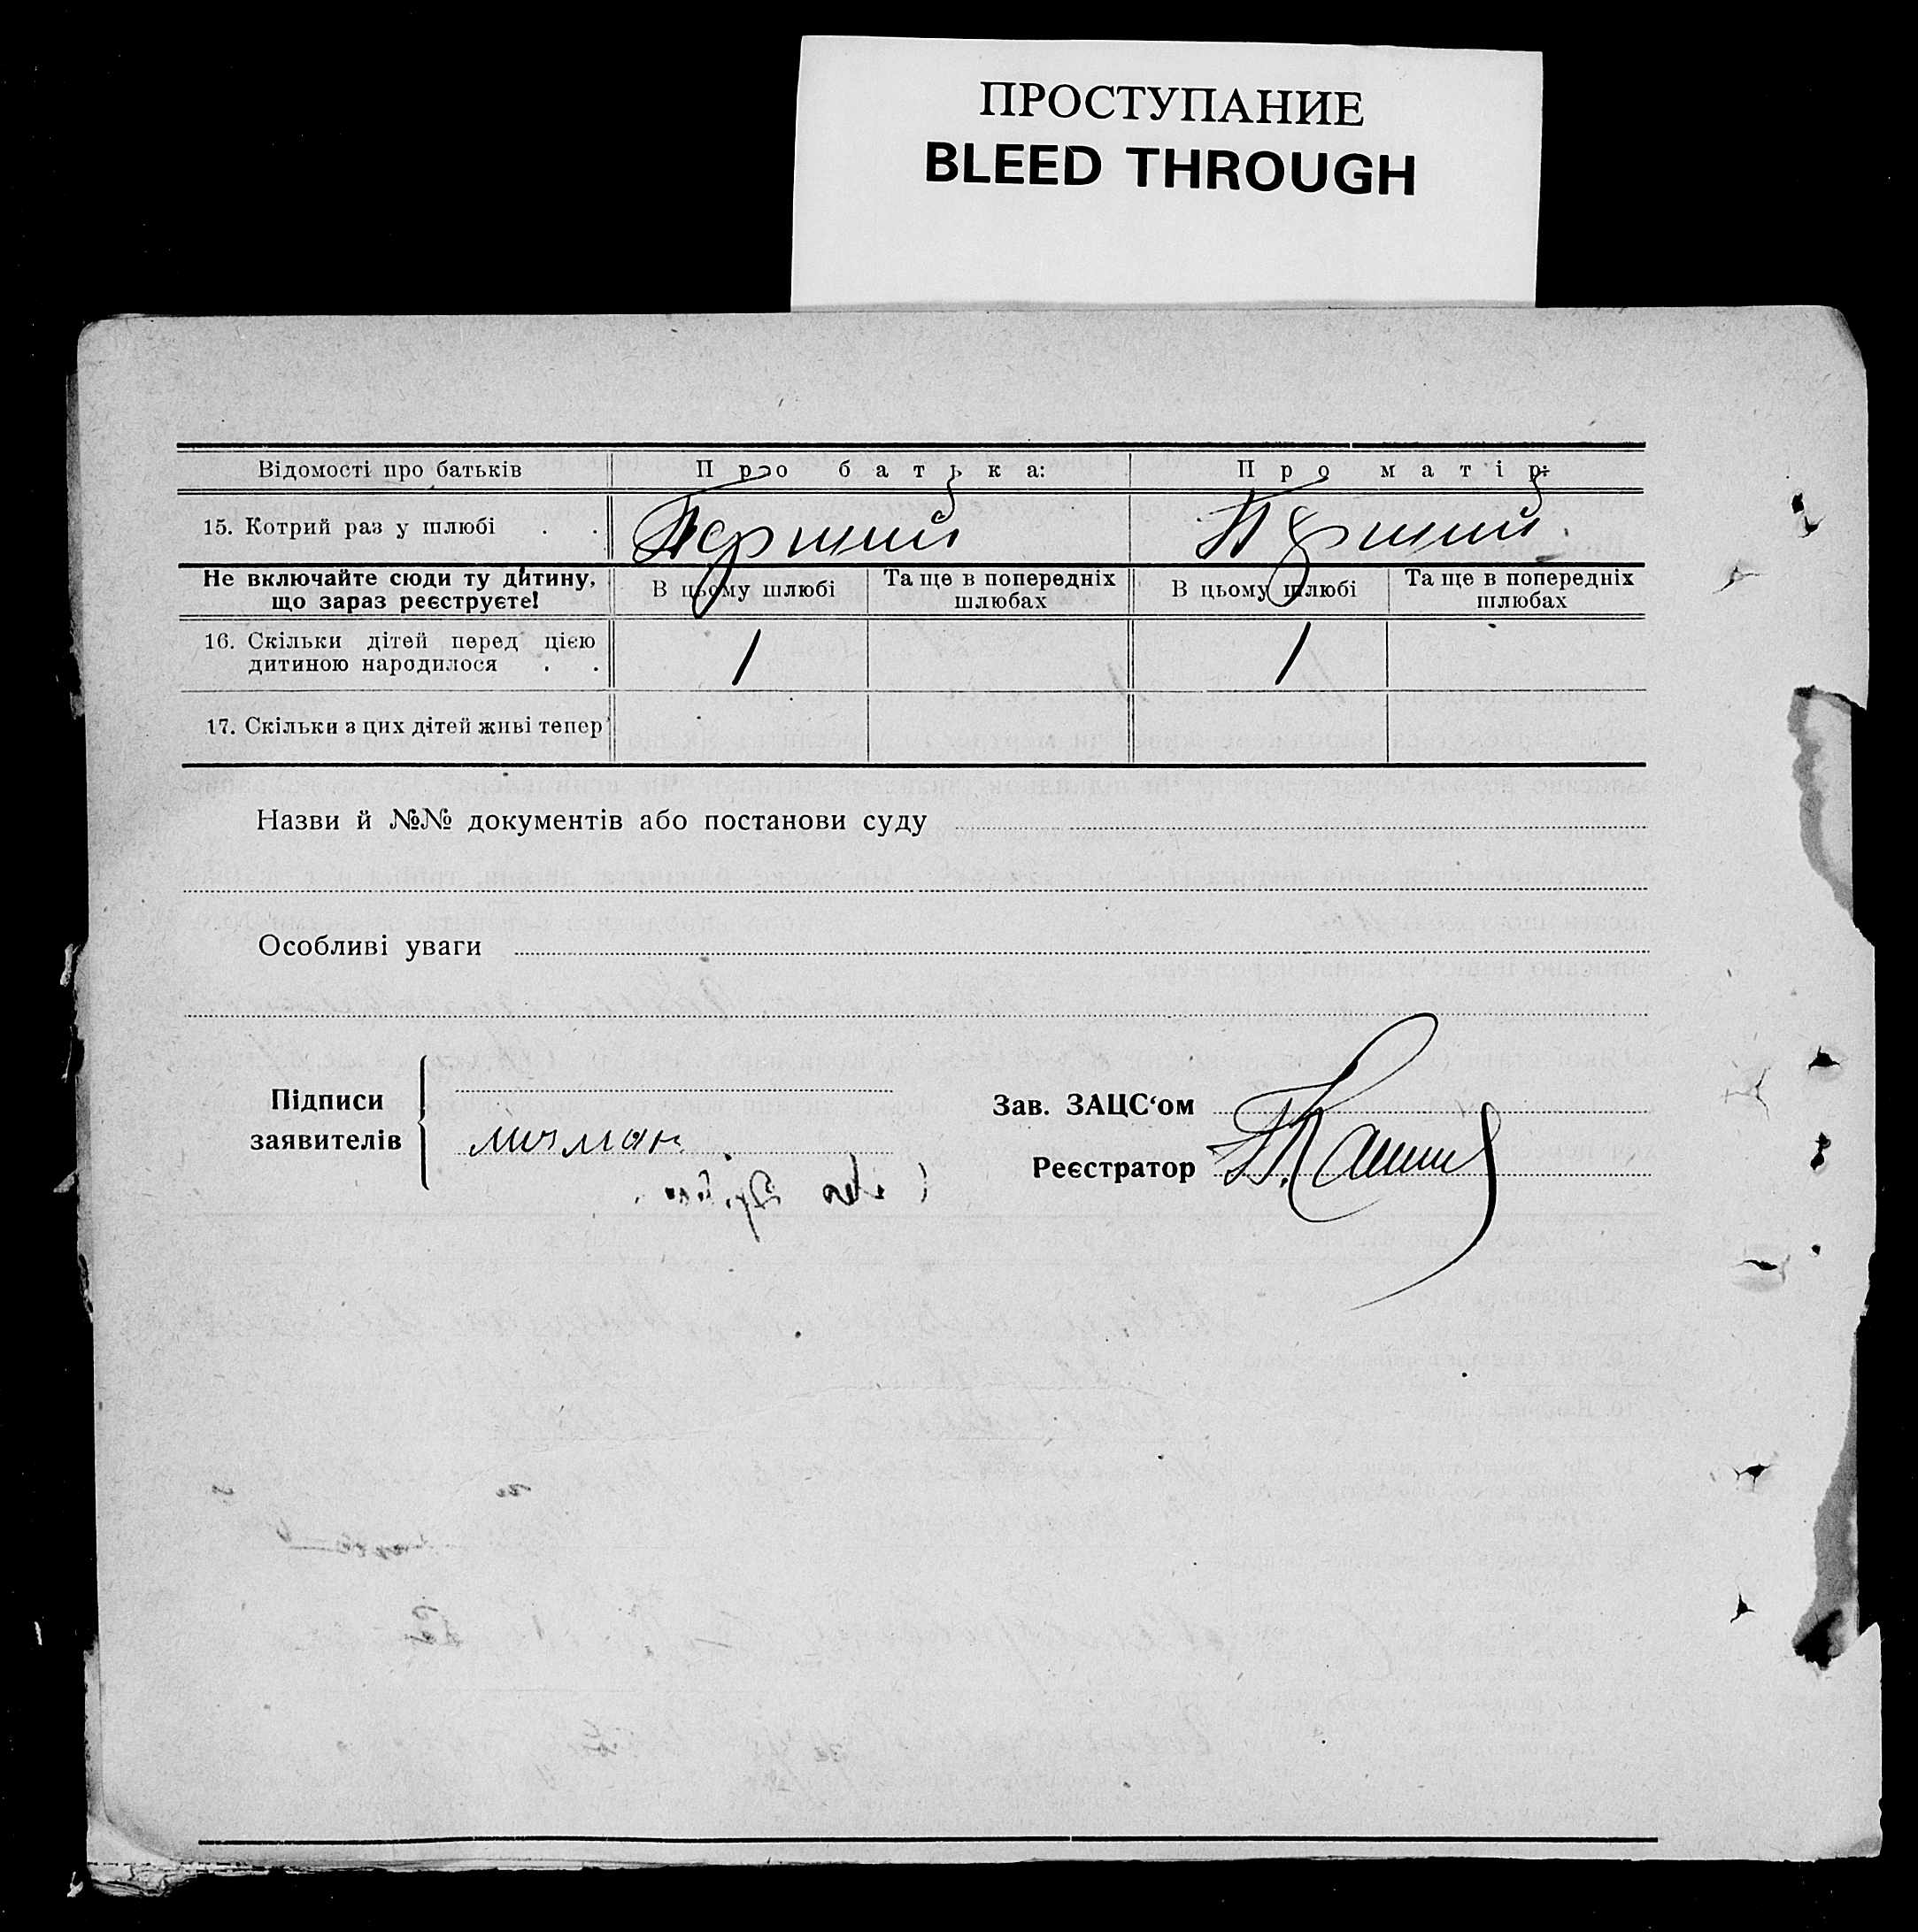 ПРОСТУПАНИЕ
BLEED THROUGH
Відомості про батьків Про батька: Про матір:
15. Котрий раз у шлюбі . . Перший Перший
Не включайте сюди ту дитину, що зараз реєструєте! В цьому шлюбі Та ще в попередніх шлюбах В цьому шлюбі Та ще в попередніх шлюбах
16. Скільки дітей перед цією
дитиною народилося . . 1 1
17. Скільки з цих дітей живі тепер
Назви й №№ документів або постанови суду
Особливі уваги
Підписи
заявителів
Зав. ЗАЦС‘ом
Реєстратор